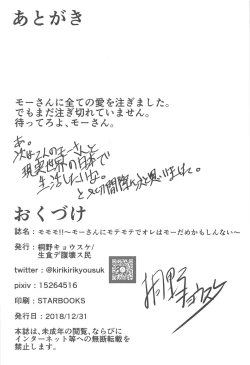 あとがき
モーさんに全ての愛を注ぎました。
でもまだ注ぎ切れていません。
待ってろよ、モーさん。
あ。
次は2人のモーさんと
現実世界の日本で
生活したいな。
おくづけ
誌名：モモモ!!～モーさんにモテモテでオレはモーだめかもしんない～
発行：桐野キョウスケ/
生食デ腹壊ス民
twitter：@kirikirikyousuk
pixiv：15264516
印刷：STARBOOKS
桐野キョウスケ
発行日：2018/12/31
本誌は、未成年の閲覧、ならびに
インターネット等への無断転載を
禁止します。